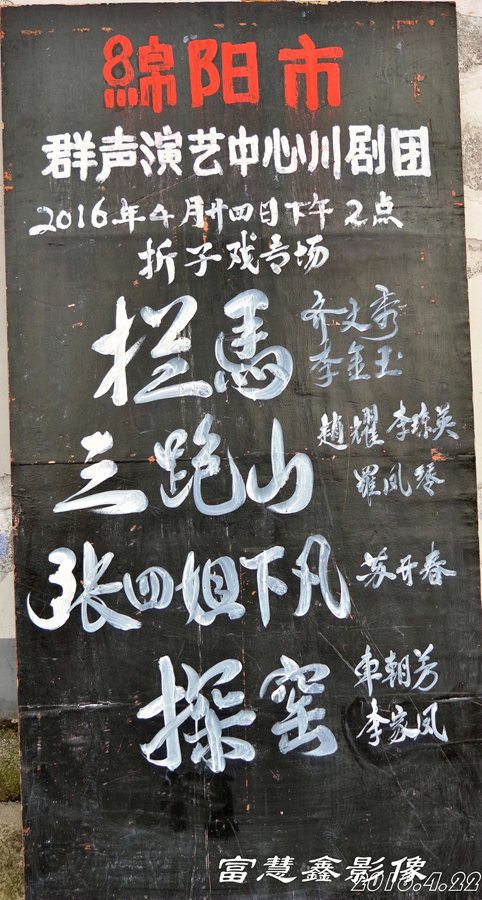 綿阳市
群声演艺中心川剧团
2016年4月廿四日下午2点
折子戏专场
拦馬 齐文秀
李金玉
三跑山 趙耀 李琼英
羅凤琴
张四姐下凡 苏开春
探窑 車朝芳
李家凤
富慧鑫影像
2016.4.22